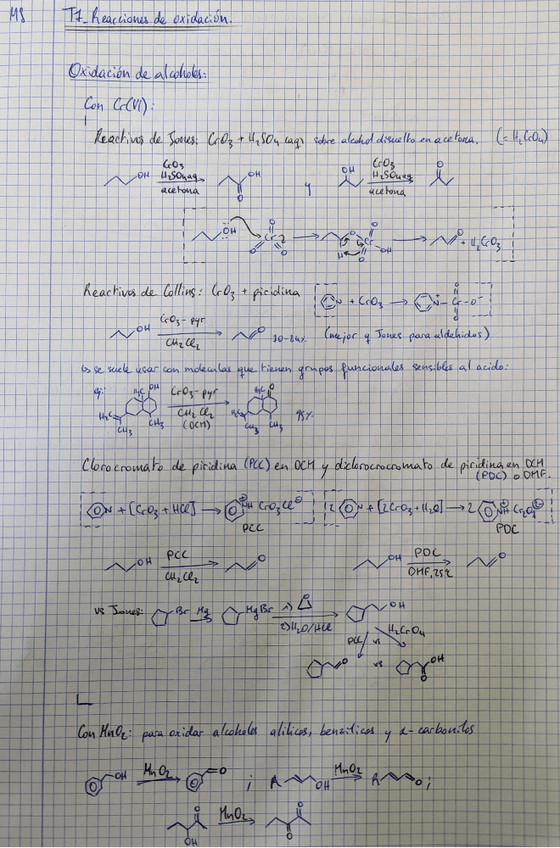 M8
T7_ Reacciones de oxidación.
Oxidación de alcoholes:
Con Cr(VI):
Reactivo de Jones: CrO3 + H2SO4 (aq) sobre alcohol disuelto en acetona. (= H2CrO4)
OH CrO3 H2SO4 aq acetona OH O y OH CrO3 H2SO4 aq acetona O
Reactivo de Collins: CrO3 + piridina
N + CrO3 → N - Cr - O
OH CrO3-pyr CH2Cl2 O (mejor q Jones para aldehidos)
↳ se suele usar con moleculas que tienen grupos funcionales sensibles al acido:
ej: H3C OH CH3 CrO3-pyr CH2Cl2 (DCM) H3C O CH3 95%
Clorocromato de piridina (PCC) en DCM y diclorocromato de piridina en DCM
(PDC) o DMF.
N + [CrO3 + HCl] → NH CrO3Cl⊖ PCC
2 N + [2CrO3 + H2O] → 2 NH Cr2O7 PDC
OH PCC CH2Cl2 O
OH PDC DMF, 25ºC O
vs Jones: Br Mg MgBr 1) O 2) H2O/HCl OH
PCC vs H2CrO4
O vs OH O
Con MnO2: para oxidar alcoholes alilicos, bencilicos y α-carbonilos
OH MnO2 O ; R OH MnO2 R O ;
O OH MnO2 O O